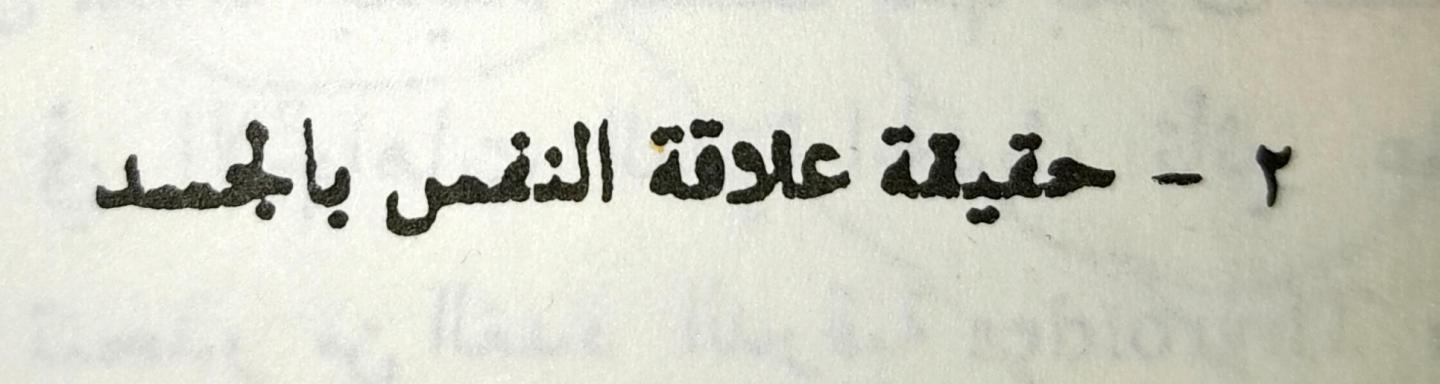 ٢ - حقيقة علاقة النفس بالجسد